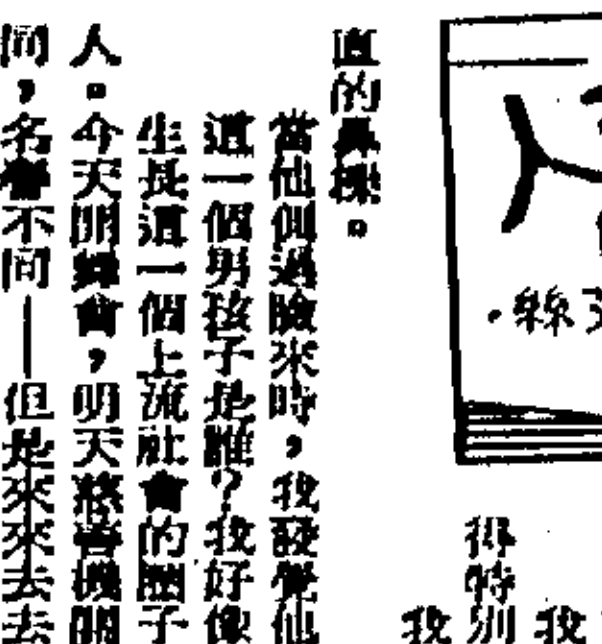 我
得特別
我
直的鼻樑。
當他側過臉來時，我發覺他
這一個男孩子是誰？我好像
生長這一個上流社會的圈子
人。今天開舞會，明天慈善機關
同，名譽不同——但是來來去去